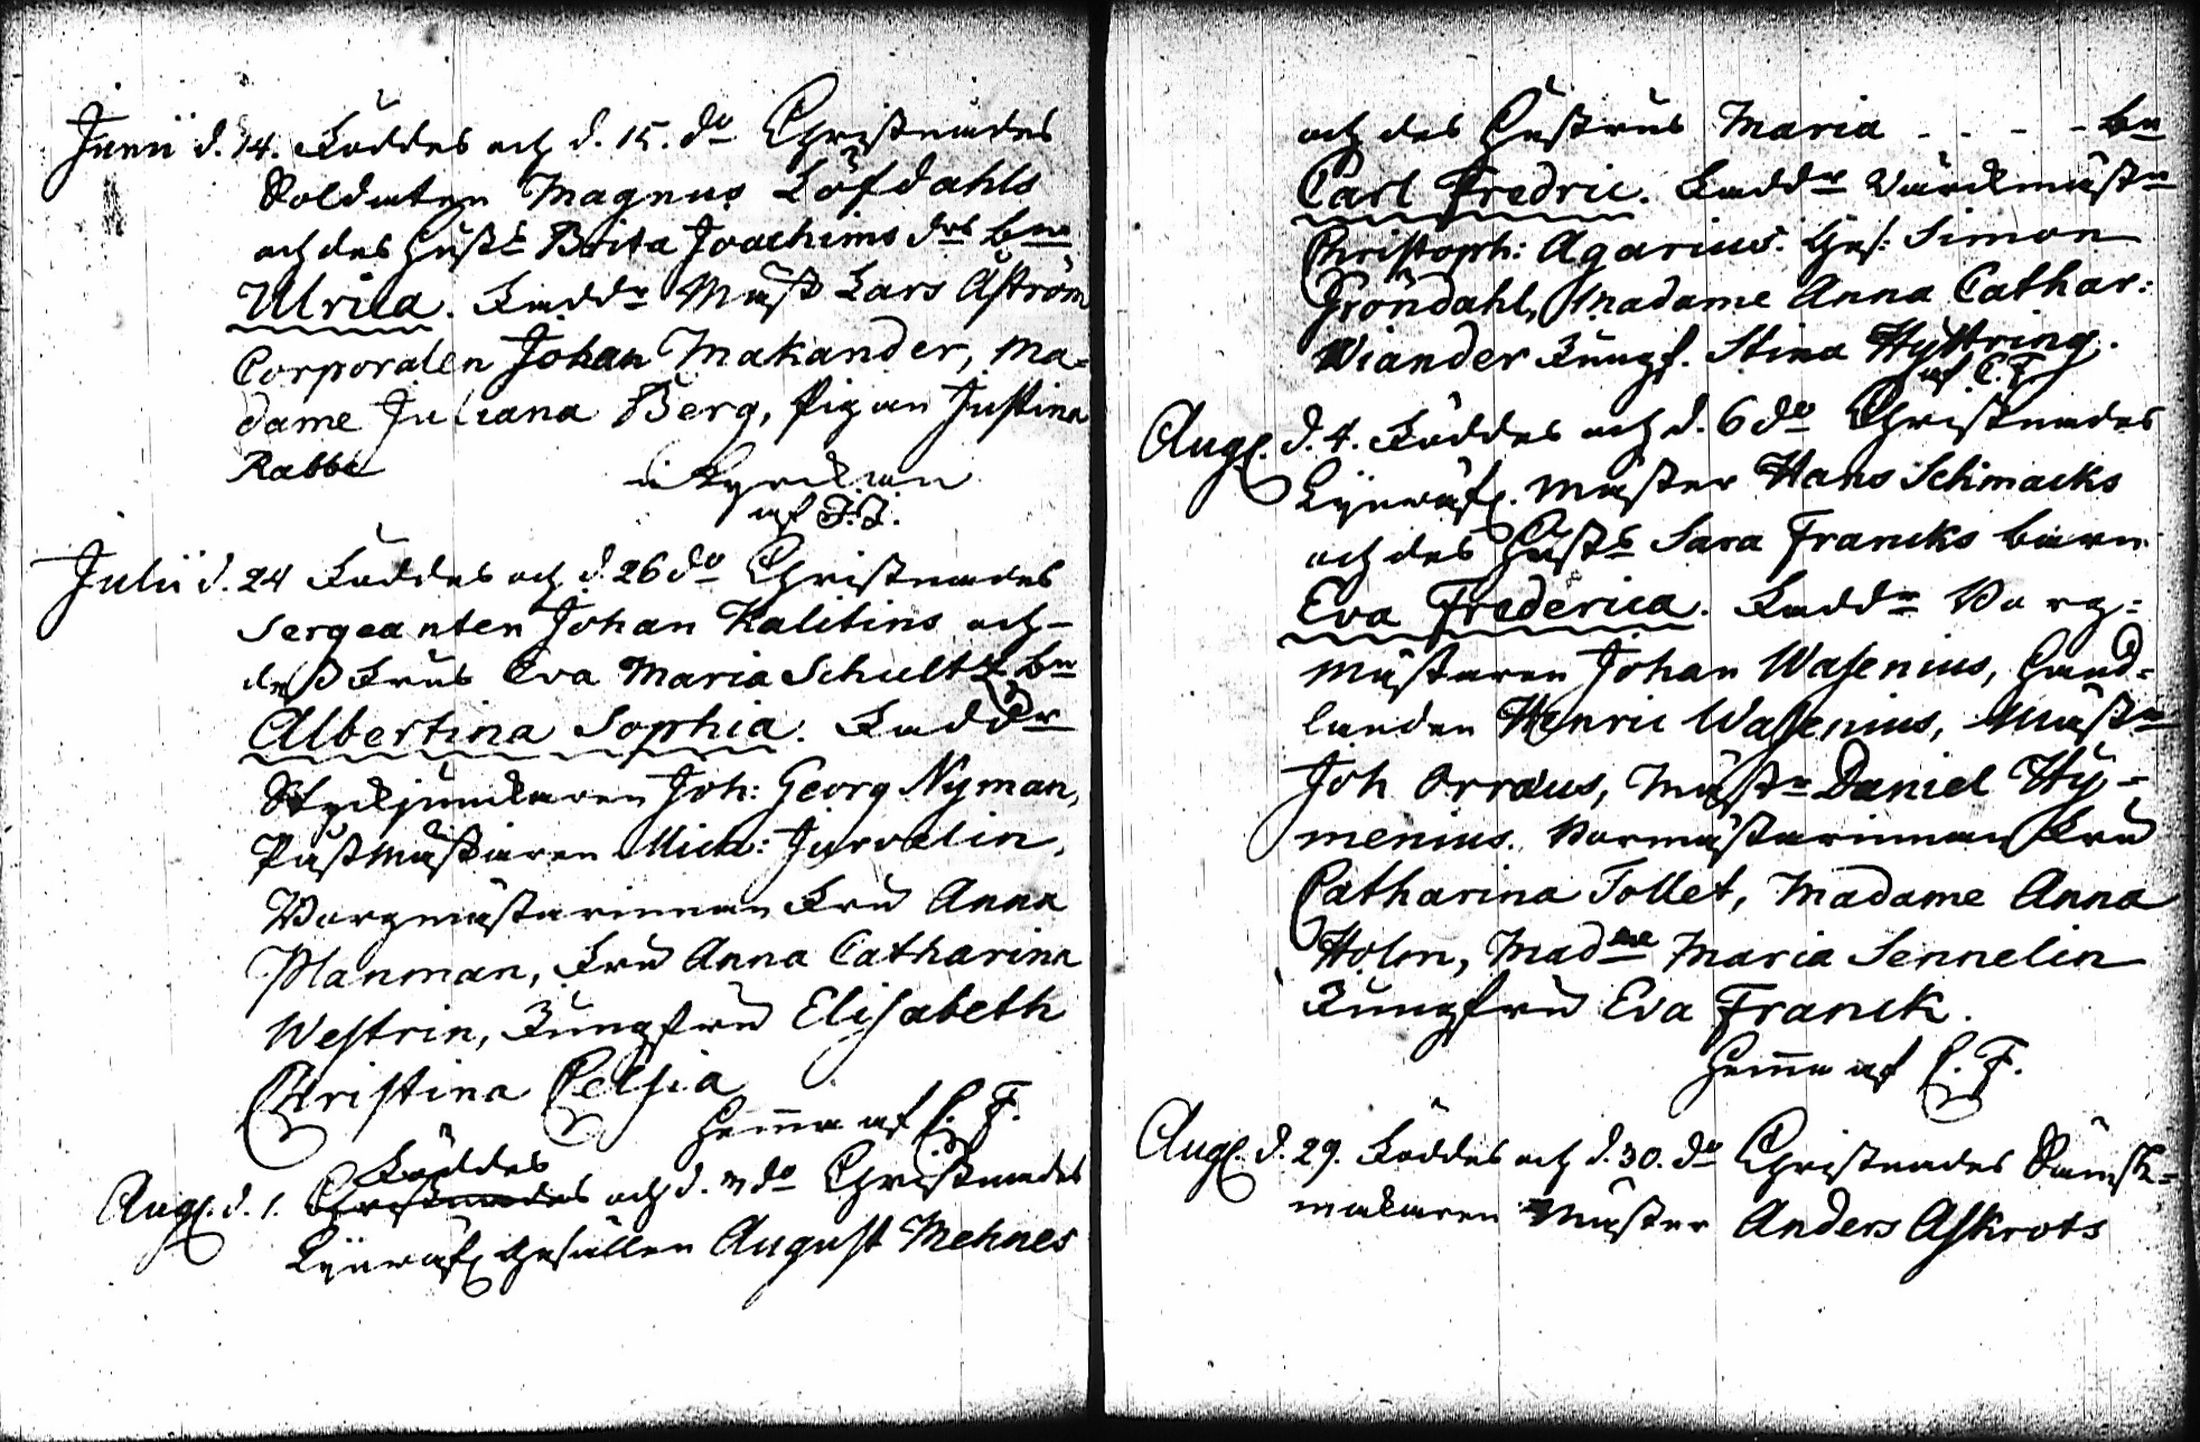 Junii d. 14. Föddes och d. 15. do Christnades
Soldaten Magnus Löfdahls
och des Hust: Brita Joachims drs bn
Ulrica. Fadd:r Mäst Lars Åström
Corporalen Johan Makander, Ma-
dame Juliana Berg, Pigan Justina
Rabbe i Kyrckian
af J.J.
Julii d. 24 Föddes och d. 26 do Christnades
Sergeanten Johan Kalitins och
deß Frus Eva Maria Schultz bn
Albertina Sophia. Fadd:r
Styckjunckaren Joh: Georg Nyman,
Postmästaren Mich: Jurvelin,
Borgmästarinnan Fru Anna
Planman, Fru Anna Catharina
Westrin, Jungfru Elisabeth
Christina Celsia
Hemma af C. F.
Föddes
Aug. d. 1. Christnades och d. 3 do Christnades
Gesällen August Mehnes
och des Hustrus Maria - - - - bn
Carl Fredric. Fadd:r Värdmäst:n
Christoph: Agarius. Ges: Simon
Gröndahl, Madame Anna Cathar:
Wiander Jungf. Stina Hyttring.
af C. F.
Aug. d. 4. Föddes och d. 6 do Christnades
Mäster Hans Schmacks
och des Hust: Sara Francks barn
Eva Frederica. Fadd:r Borg-
mästaren Johan Wasenius, Hand-
landen Henric Wasenius, Mäst:r
Joh Orraeus, Mäst:r Daniel Hy-
menius. Bormästarinnan Fru
Catharina Tollet, Madame Anna
Holm, Mad:me Maria Sennelin
Jungfru Eva Franck.
Hemma af C. F.
Aug. d. 29. Föddes och d. 30. do Christnades Sämsk-
makaren Mäster Anders Askrots